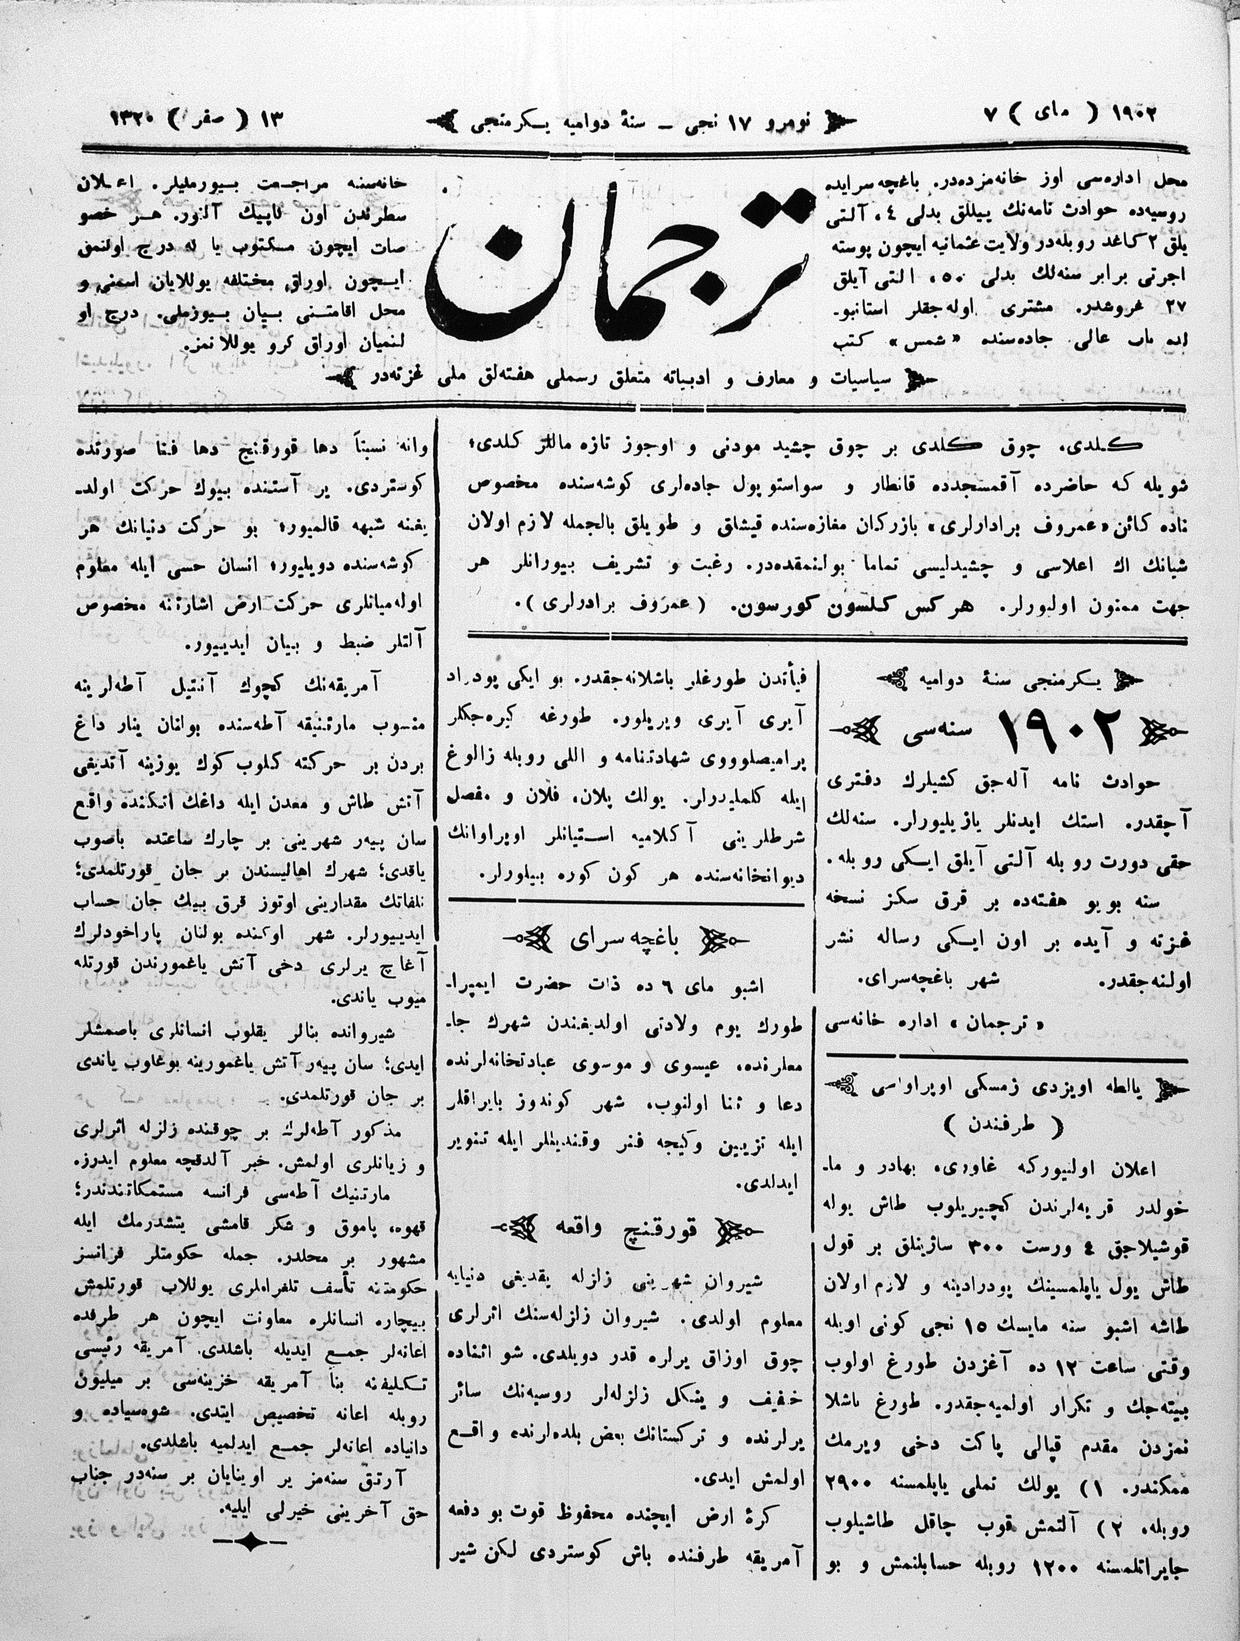 ١٩٠٢ ( مای ) ٧
نومرو ١٧ نجی ــ سنۀ دوامیه یكرمنجی
١٣ ( صفر ) ١٣٢٠
محل اداره‌سی اوز خانه‌مزده‌در. باغچه سرایده
روسیه‌ده حوادث نامه‌نك ییللق بدلی ٤، آلتی
یلق ٢ كاغد روبله‌در ولایت عثمانیه ایچون پوسته
اجرتی برابر سنه‌لك بدلی ٥٠، التی آیلق
٢٧ غروشدر. مشتری اوله‌جقلر استانبو-
لده باب عالی جاده‌سنده «شمس» كتب
ترجمان
خانه‌سنه مراجعت بیورملیلر. اعلان
سطرندن اون قاپیك آلنور. هر خصو
صات ایچون مكتوب یا له درج اولنمق
ایچون اوراق مختلفه یوللایان اسمنی و
محل اقامتنی بیان بیورملی. درج او
لنمیان اوراق كرو یوللانمز.
سیاسیات و معارف و ادبیاته متعلق رسملی هفته‌لق ملی غزته‌در
كلدی، چوق كلدی بر چوق چشید مودنی و اوجوز تازه ماللر كلدی؛
شویله كه حاضرده آقمسجدده قانطار و سواستوپول جاده‌لری كوشه‌سنده مخصوص
ناده كائن «عمروف برادارلری» بازركان مغازه‌سنده قیشلق و طویلق بالجمله لازم اولان
شیانك اك اعلاسی و چشیدلیسی تماما بولنمقده‌در. رغبت و تشریف بیورانلر هر
جهت ممنون اولبورلر. هركس كلسون كورسون. (عمروف برادرلری).
یكرمنجی سنۀ دوامیه
١٩٠٢ سنه‌سی
حوادث نامه آله‌جق كشیلرك دفتری
آچقدر. استك ایدنلر یازیلیورلر. سنه‌لك
حقی دورت روبله آلتی آیلق ایكی روبله.
سنه بویو هفته‌ده بر قرق سكز نسخه
غزته و آیده بر اون ایكی رساله نشر
اولنه‌جقدر. شهر باغچه‌سرای.
«ترجمان» اداره خانه‌سی
یالطه اویزدی زمسكی اوپراواسی
( طرفندن )
اعلان اولنیوركه غاوری، بهادر و ما-
خولدر قریه‌لرندن كچیریلوب طاش یوله
قوشیلاجق ٤ ورست ٣٠٠ ساژینلق بر قول
طاش یول یاپلمسینك پودرادینه و لازم اولان
طاشه اشبو سنه مایسك ١٥ نجی كونی اویله
وقتی ساعت ١٢ ده آغزدن طورغ اولوب
بیته‌جك و تكرار اولمیه‌جقدر. طورغ باشلا
نمزدن مقدم قپالی پاكت دخی ویرمك
ممكندر. ١) یولك تملی یاپلمسنه ٢٩٠٠
روبله، ٢) آلتمش قوب چاقل طاشیلوب
جایراتلمسنه ١٢٠٠ روبله حسابلنمش و بو
فیأتدن طورغلر باشلانه‌جقدر. بو ایكی پودراد
آیری آیری ویریلور. طورغه كیره‌جكلر
پرامیصلوووی شهادتنامه و اللی روبله زالوغ
ایله كلملیدرلر. یولك پلان، فلان و مفصل
شرطلرینی آكلامیه استیانلر اوپراوانك
دیوانخانه‌سنده هر كون كوره بیلورلر.
باغچه سرای
اشبو مای ٦ ده ذات حضرت ایمپرا-
طورك یوم ولادتی اولدیغندن شهرك جا-
معلرنده، عیسوی و موسوی عبادتخانه‌لرنده
دعا و ثنا اولنوب، شهر كوندوز بایراقلر
ایله تزیین وكیجه فنر وقندیللر ایله تنویر
ایدلدی.
قورقنچ واقعه
شیروان شهرینی زلزله یقدیغی دنیایه
معلوم اولدی. شیروان زلزله‌سنك اثرلری
چوق اوزاق یرلره قدر دویلدی. شو اثناده
خفیف و یتكل زلزله‌لر روسیه‌نك سائر
یرلرنده و تركستانك بعض بلده‌لرنده واقع
اولمش ایدی.
كرۀ ارض ایچنده محفوظ قوت بو دفعه
آمریقه طرفنده باش كوستردی لكن شیر
وانه نسبتاً دها قورقنچ دها فنا صورتده
كوستردی. یر آستنده بیوك حركت اولد-
یغنه شبهه قالمیور؛ بو حركت دنیانك هر
كوشه‌سنده دویلیور؛ انسان حسی ایله معلوم
اوله‌میانلری حركت ارض اشارتنه مخصوص
آلتلر ضبط و بیان ایدییور.
آمریقه‌نك كچوك آنتیل آطه‌لرینه
منسوب مارتنیقه آطه‌سنده بولنان ینار داغ
بردن بر حركته كلوب كوك یوزینه آتدیغی
آتش طاش و معدن ایله داغك اتكنده واقع
سان پیه‌ر شهرینی بر چارك ساعتده باصوب
یاقدی؛ شهرك اهالیسندن بر جان قورتلمدی؛
تلفاتك مقدارینی اوتوز قرق بیك جان حساب
ایدییورلر. شهر اوكنده بولنان پاراخودلرك
آغاچ یرلری دخی آتش یاغمورندن قورتله
میوب یاندی.
شیروانده بنالر یقلوب انسانلری باصمشلر
ایدی؛ سان پیه‌ر آتش یاغمورینه بوغاوب یاندی
بر جان قورتلمدی.
مذكور آطه‌لرك بر چوقنده زلزله اثرلری
و زیانلری اولمش. خبر آلدقچه معلوم ایدرز.
مارتنیك آطه‌سی فرانسه مستملكاتندندر؛
قهوه، پاموق و شكر قامشی یتشدرمك ایله
مشهور بر محلدر. جمله حكومتلر فرانسز
حكومتنه تأسف تلغرافلری یوللاب قورتلمش
بیچاره انسانلره معاونت ایچون هر طرفده
اعانه‌لر جمع ایدیله باشلدی. آمریقه رئیسی
تكلیفنه بنا آمریقه خزینه‌سی بر میلیون
روبله اعانه تخصیص ایتدی. شوه‌سیاده و
دانیاده اعانه‌لر جمع ایدلمیه باشلدی.
آرتق سنه‌مز یر اوینایان بر سنه‌در جناب
حق آخرینی خیرلی ایلیه.